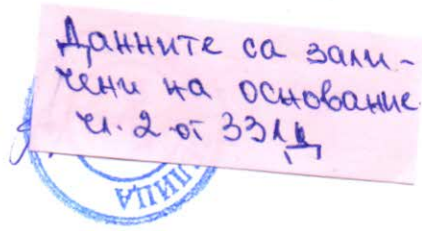 Данните са зали-
чени на основание
чл. 2 от ЗЗЛД